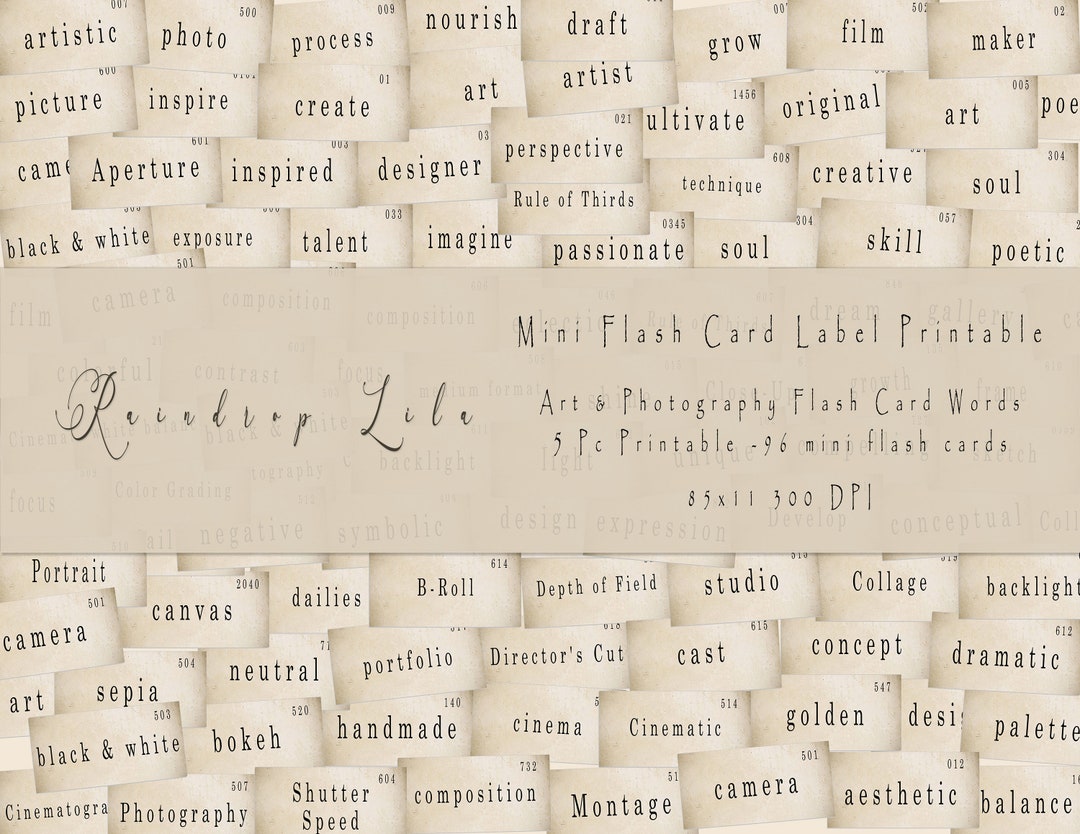 007
500
009
502
02
artistic
photo
process
nourish
draft
grow
film
maker
600
01
picture
inspire
create
art
artist
1456
ultivate
original
005
art
poe
601
003
03
021
came
Aperture
inspired
designer
perspective
608
technique
creative
304
soul
Rule of Thirds
033
0345
304
057
black & white
exposure
talent
imagine
passionate
soul
skill
poetic
501
film
camera
composition
606
composition
Rule of Thirds
dream
gallery
Mini Flash Card Label Printable
colorful
contrast
603
focus
medium format
Close-Up
growth
frame
Raindrop Lila
Art & Photography Flash Card Words
5 Pc Printable -96 mini flash cards
Cinema
black & white
backlight
light
unique
compelling
sketch
tography
focus
Color Grading
85x11 300 DPI
negative
symbolic
design
expression
Develop
conceptual
Coll
Portrait
2040
canvas
dailies
614
B-Roll
Depth of Field
studio
Collage
backlight
501
camera
504
neutral
portfolio
Director's Cut
615
cast
concept
612
dramatic
art
sepia
503
black & white
520
bokeh
140
handmade
cinema
514
Cinematic
547
golden
desi
palette
Cinematogra
507
Photography
604
Shutter
Speed
732
composition
51
Montage
501
camera
012
aesthetic
balance